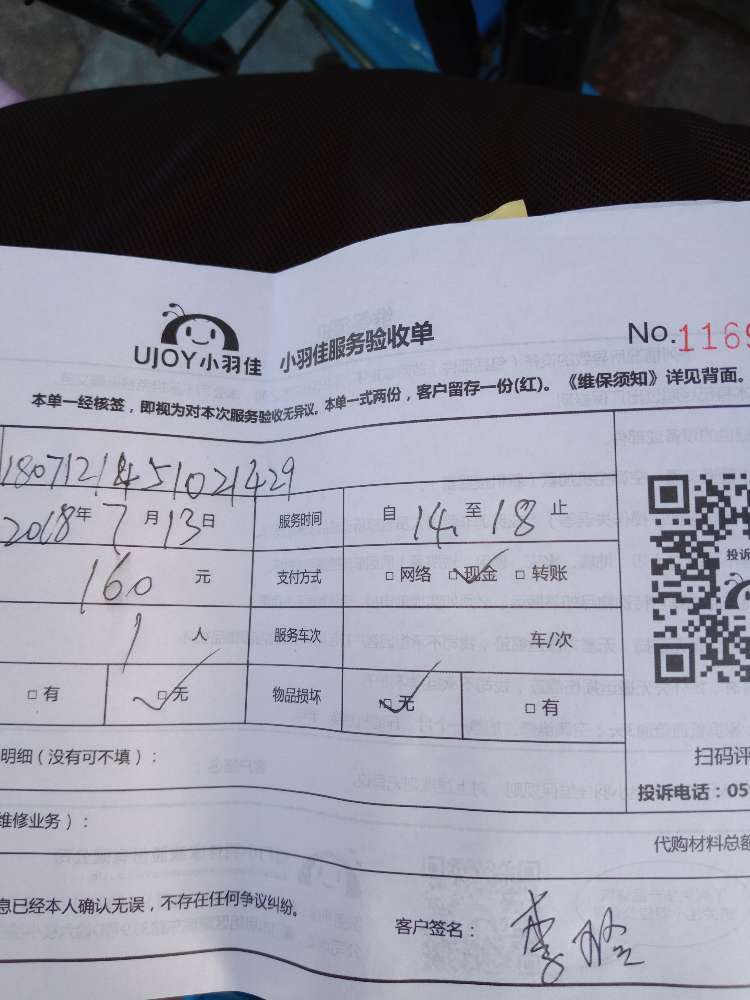 UJOY小羽佳 小羽佳服务验收单 No.1169
本单一经核签，即视为对本次服务验收无异议。本单一式两份，客户留存一份(红)。《维保须知》详见背面。
2018年7月13日 服务时间 自14至18止
160元 支付方式 □网络 □现金 □转账
1人 服务车次 车/次
□有 □无 物品损坏 □无 □有
投诉
明细（没有可不填）：
扫码评
投诉电话：059
维修业务）：
代购材料总额
息已经本人确认无误，不存在任何争议纠纷。
客户签名：